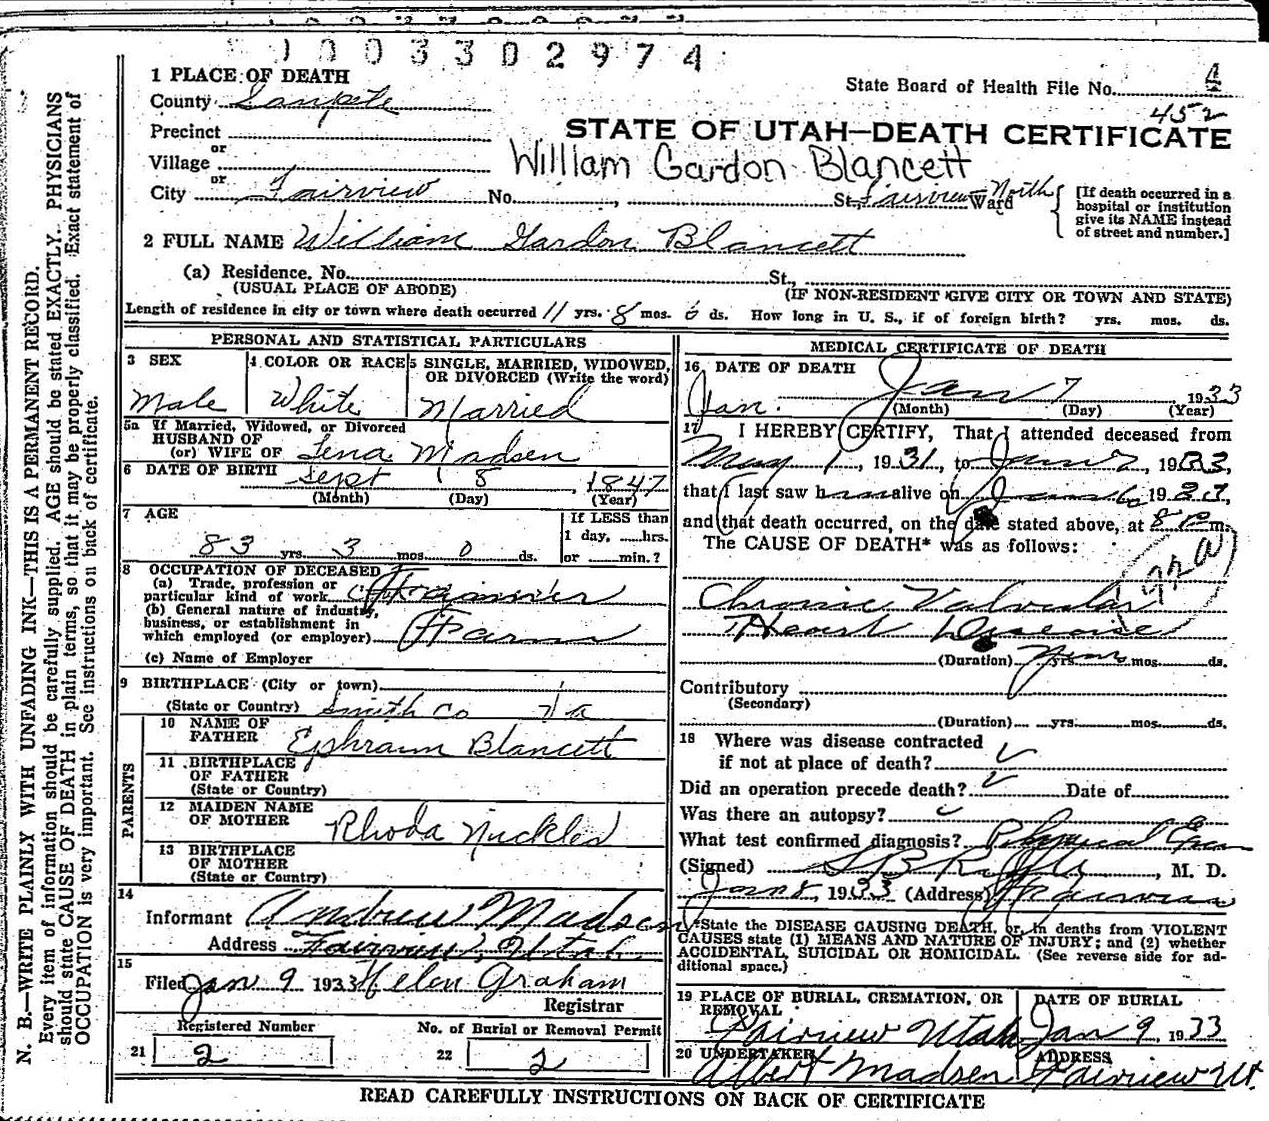 1003302974
1 PLACE OF DEATH
State Board of Health File No. 4
County Sanpete
452
STATE OF UTAH—DEATH CERTIFICATE
Precinct
or
William Gardon Blancett
Village
or
City Fairview No. St., Fairview North Ward
[If death occurred in a
hospital or institution
give its NAME instead
of street and number.]
2 FULL NAME William Gardon Blancett
(a) Residence, No. St.,
(USUAL PLACE OF ABODE) (IF NON-RESIDENT GIVE CITY OR TOWN AND STATE)
Length of residence in city or town where death occurred 11 yrs. 8 mos. 6 ds. How long in U. S., if of foreign birth? yrs. mos. ds.
PERSONAL AND STATISTICAL PARTICULARS
3 SEX 4 COLOR OR RACE 5 SINGLE, MARRIED, WIDOWED,
OR DIVORCED (Write the word)
Male White Married
5a If Married, Widowed, or Divorced
HUSBAND OF
(or) WIFE OF Lena Madsen
6 DATE OF BIRTH Sept 18, 1847
(Month) (Day) (Year)
7 AGE If LESS than
1 day, hrs.
83 yrs. 3 mos. 0 ds. or min.?
8 OCCUPATION OF DECEASED
(a) Trade, profession or
particular kind of work
(b) General nature of industry,
business, or establishment in
which employed (or employer) Farm
(c) Name of Employer
9 BIRTHPLACE (City or town)
(State or Country) Smith Co Va
PARENTS
10 NAME OF
FATHER Ephraim Blancett
11 BIRTHPLACE
OF FATHER
(State or Country)
12 MAIDEN NAME
OF MOTHER Rhoda Nuckles
13 BIRTHPLACE
OF MOTHER
(State or Country)
14
Informant Andrew Madsen
Address Fairview, Utah
15
Filed Jan 9 1933 Helen Graham
Registrar
Registered Number No. of Burial or Removal Permit
21 2 22 2
MEDICAL CERTIFICATE OF DEATH
16 DATE OF DEATH
Jan 7 1933
Jan. (Month) (Day) (Year)
17 I HEREBY CERTIFY, That I attended deceased from
May 1, 1931, to Jan 7 1933,
that I last saw h alive on Jan 1933,
and that death occurred, on the date stated above, at 8 P m.
The CAUSE OF DEATH* was as follows:
92a
Chronic Valvular
Heart Disease
(Duration) yrs. mos. ds.
Contributory
(Secondary)
(Duration) yrs. mos. ds.
18 Where was disease contracted
if not at place of death?
Did an operation precede death? Date of
Was there an autopsy?
What test confirmed diagnosis? Physical Exam
(Signed) , M. D.
Jan 8, 1933 (Address) Fairview
*State the DISEASE CAUSING DEATH, or, in deaths from VIOLENT
CAUSES state (1) MEANS AND NATURE OF INJURY; and (2) whether
ACCIDENTAL, SUICIDAL OR HOMICIDAL. (See reverse side for ad-
ditional space.)
19 PLACE OF BURIAL, CREMATION, OR DATE OF BURIAL
REMOVAL
Fairview Utah Jan 9 1933
20 UNDERTAKER ADDRESS
Albert Madsen Fairview Ut.
READ CAREFULLY INSTRUCTIONS ON BACK OF CERTIFICATE
N. B.—WRITE PLAINLY WITH UNFADING INK—THIS IS A PERMANENT RECORD.
Every item of information should be carefully supplied. AGE should be stated EXACTLY. PHYSICIANS
should state CAUSE OF DEATH in plain terms, so that it may be properly classified. Exact statement of
OCCUPATION is very important. See instructions on back of certificate.